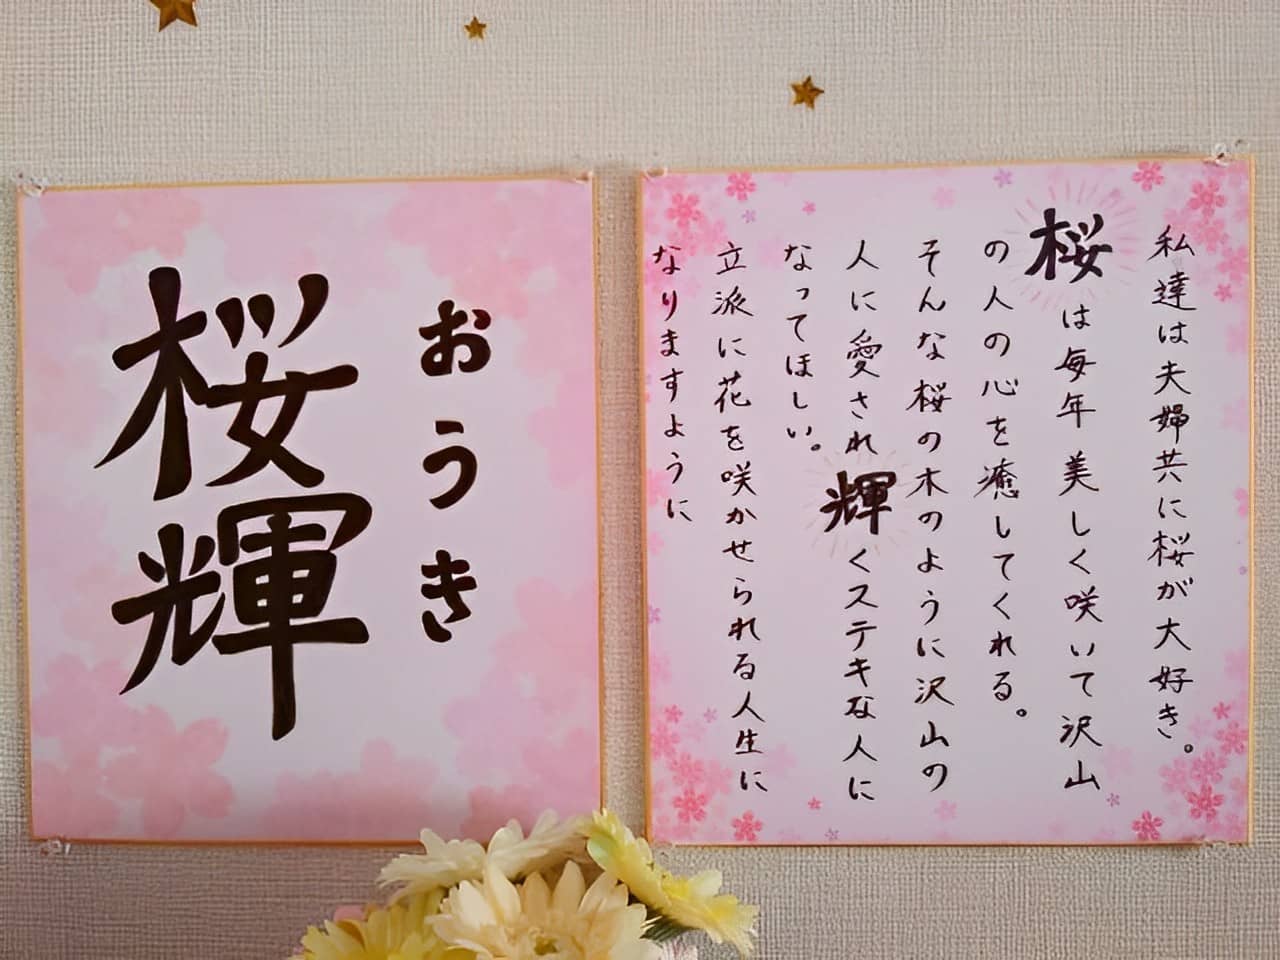 おうき
桜輝
私達は夫婦共に桜が大好き。
桜は毎年美しく咲いて沢山
の人の心を癒してくれる。
そんな桜の木のように沢山の
人に愛され輝くステキな人に
なってほしい。
立派に花を咲かせられる人生に
なりますように